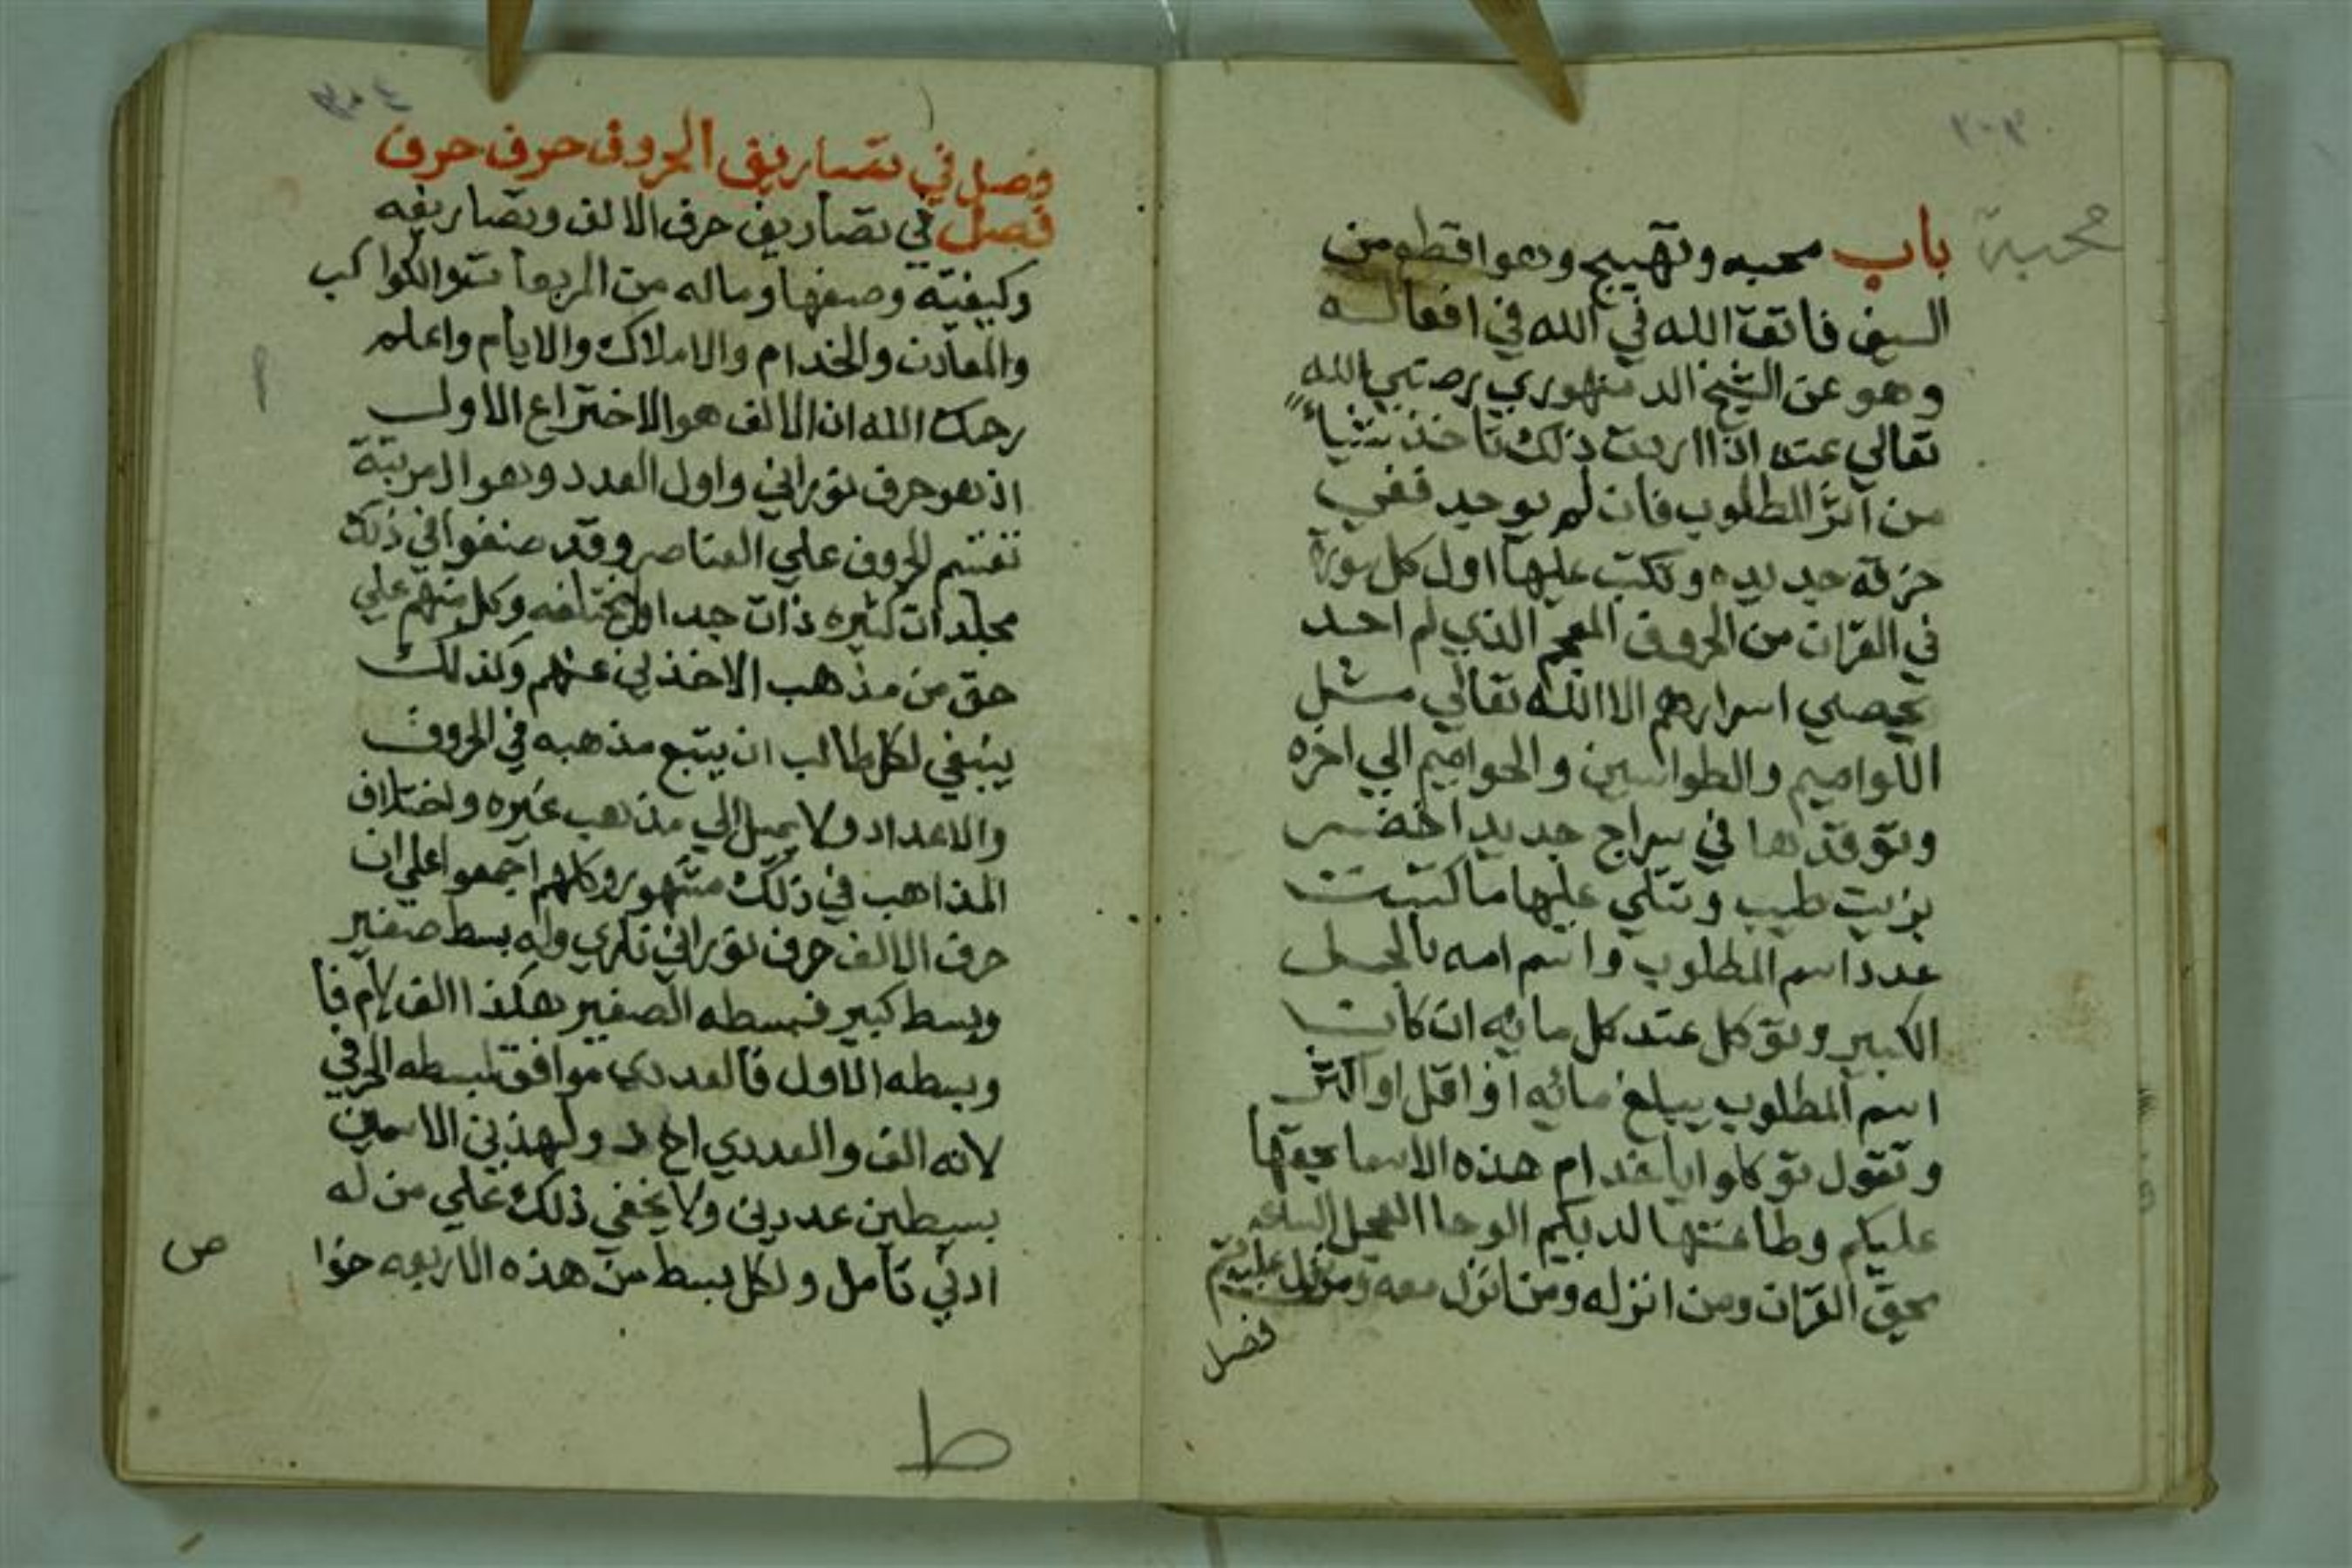 ٣٠٣
محبة
باب محبه وتهييج وهو اقطع من
السيف فاتق الله في الله في افعاله
وهو عن الشيخ الدمنهوري رضي الله
تعالي عنه اذا اردت ذلك تاخذ شياء
من اثر المطلوب فان لم يوجد ففي
خرقه جديده وتكتب عليها اول كل سورة
في القران من الحروف المعجم الذي لم احد
يحصي اسرارهم الا الله تعالي مثل
اللواميم والطواسين والحواميم الي اخره
وتوقدها في سراج جديد اخضر
بزيت طيب وتتلي عليها ما كتبت
عدد اسم المطلوب واسم امه بالجمل
الكبير وتوكل عند كل مائه ان كان
اسم المطلوب يبلغ مائه او اقل او اكثر
وتقول توكلوا يا خدام هذه الاسما بحقها
عليكم وطاعتها لديكم الوحا العجل الساعه
بحق القران ومن انزله ومن انزل معه ومن نزل عليه
فصل
٣٠٤
فصل في تصاريف الحروف حرف حرف
فصل في تصاريف حرف الالف وتصاريفه
وكيفيته وصفها وماله من المربعات والكواكب
والمعادن والخدام والاملاك والايام واعلم
رحمك الله ان الالف هو الاختراع الاول
اذ هو حرف نوراني واول العدد وهو المرتبة
تقسم الحروف علي العناصر وقد صنفوا في ذلك
مجلدات كثيره ذات جداول مختلفه وكل منهم علي
حق من مذهب الاخذين عنهم وكذلك
ينبغي لكل طالب ان يتبع مذهبه في الحروف
والاعداد ولا يميل الي مذهب غيره واختلاف
المذاهب في ذلك مشهور وكلهم اجمعوا علي ان
حرف الالف حرف نوراني ناري وله بسط صغير
وبسط كبير فبسطه الصغير هكذا الف لام فا
وبسطه الاول فالعددي موافق لبسطه الحرفي
لانه الف والعددي احد ولهذين الاسمين
بسيطين عددين ولا يخفي ذلك علي من له
ادني تامل ولكل بسط من هذه الاربعه خوا
ص
ط